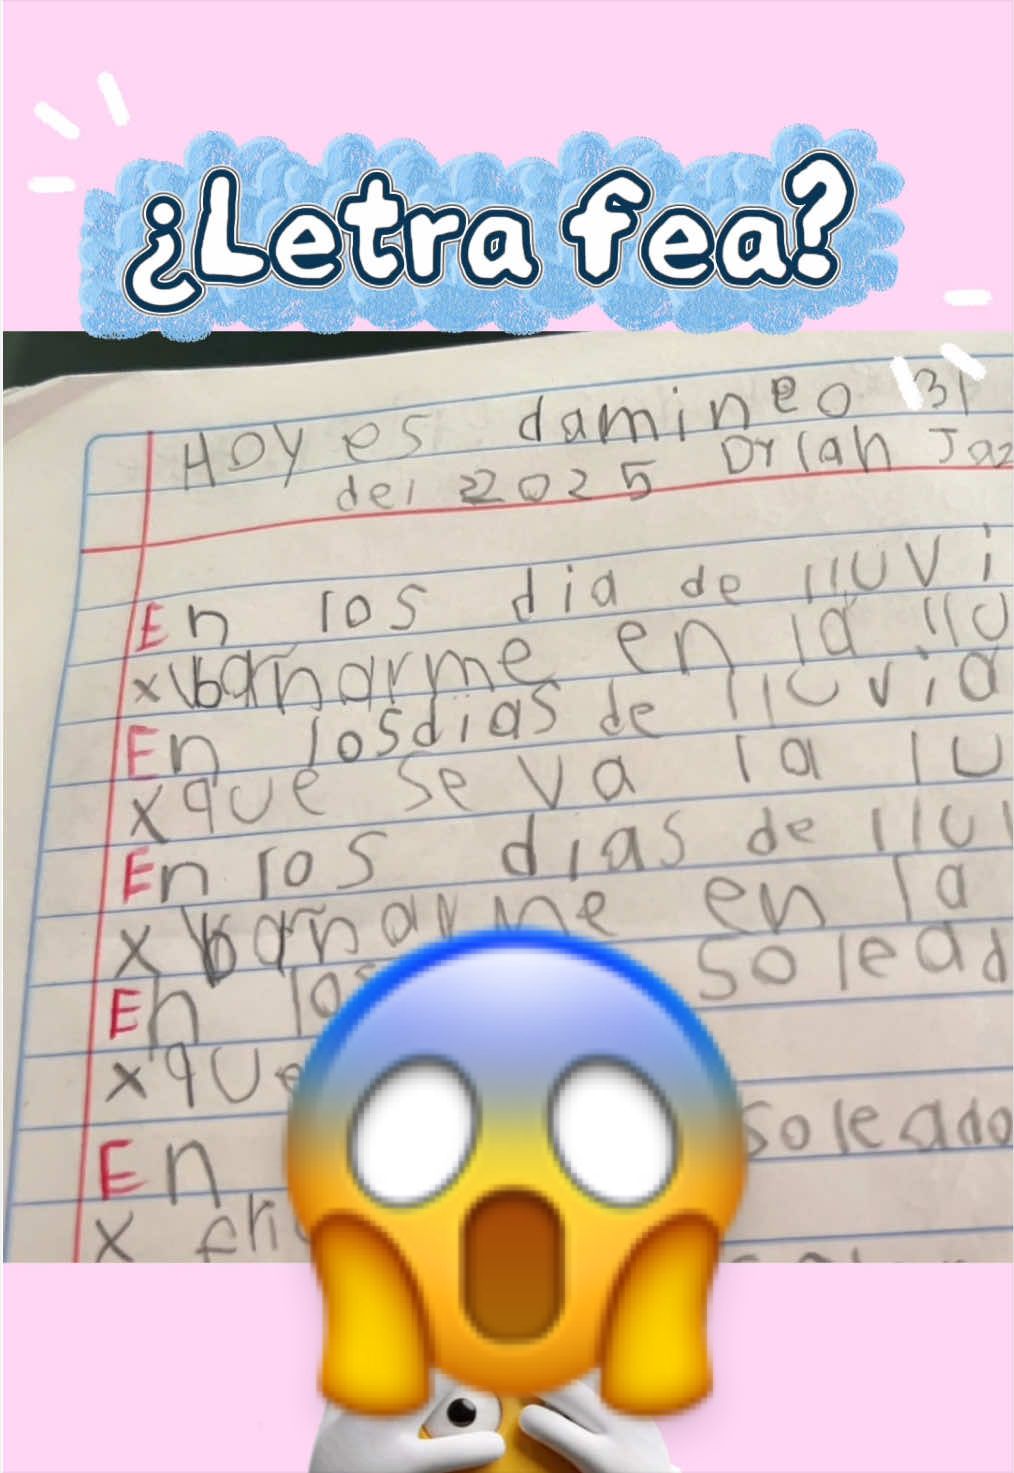 ¿Letra fea?
Hoy es damineo 31
del 2025 Drlah Jaz
En los dia de lluvi
x bañarme en la llu
En los dias de lluvia
x que se va la lu
En los dias de lluv
x bañarme en la
En los solead
x que
En soleado
x